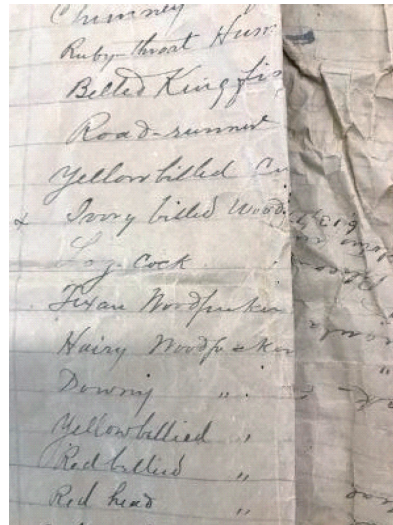 Chimney
Ruby-throat Hum
Belted Kingfis
Road-runner
Yellow billed Cu
x Ivory billed Wood
Log cock
Texan Woodpecker
Hairy Woodpecker
Downy "
Yellowbellied "
Redbellied "
Red head "